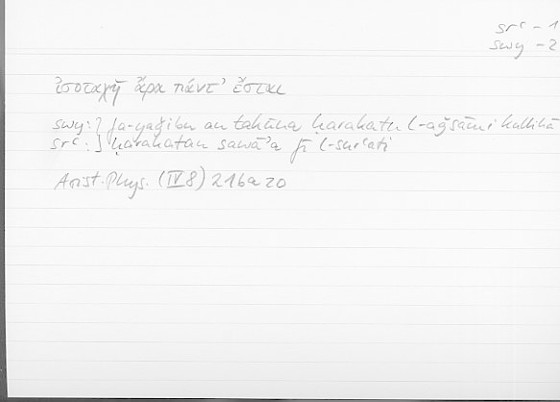 srʿ – 1
swy – 2
ἰσοταχῆ ἄρα πάντ’ ἔσται
swy: ] fa-yaǧibu an takūna ḥarakatu l-aǧsāmi kullihā
srʿ: ] ḥarakatan sawāʾa fī l-surʿati
Arist. Phys. (IV 8) 216a20